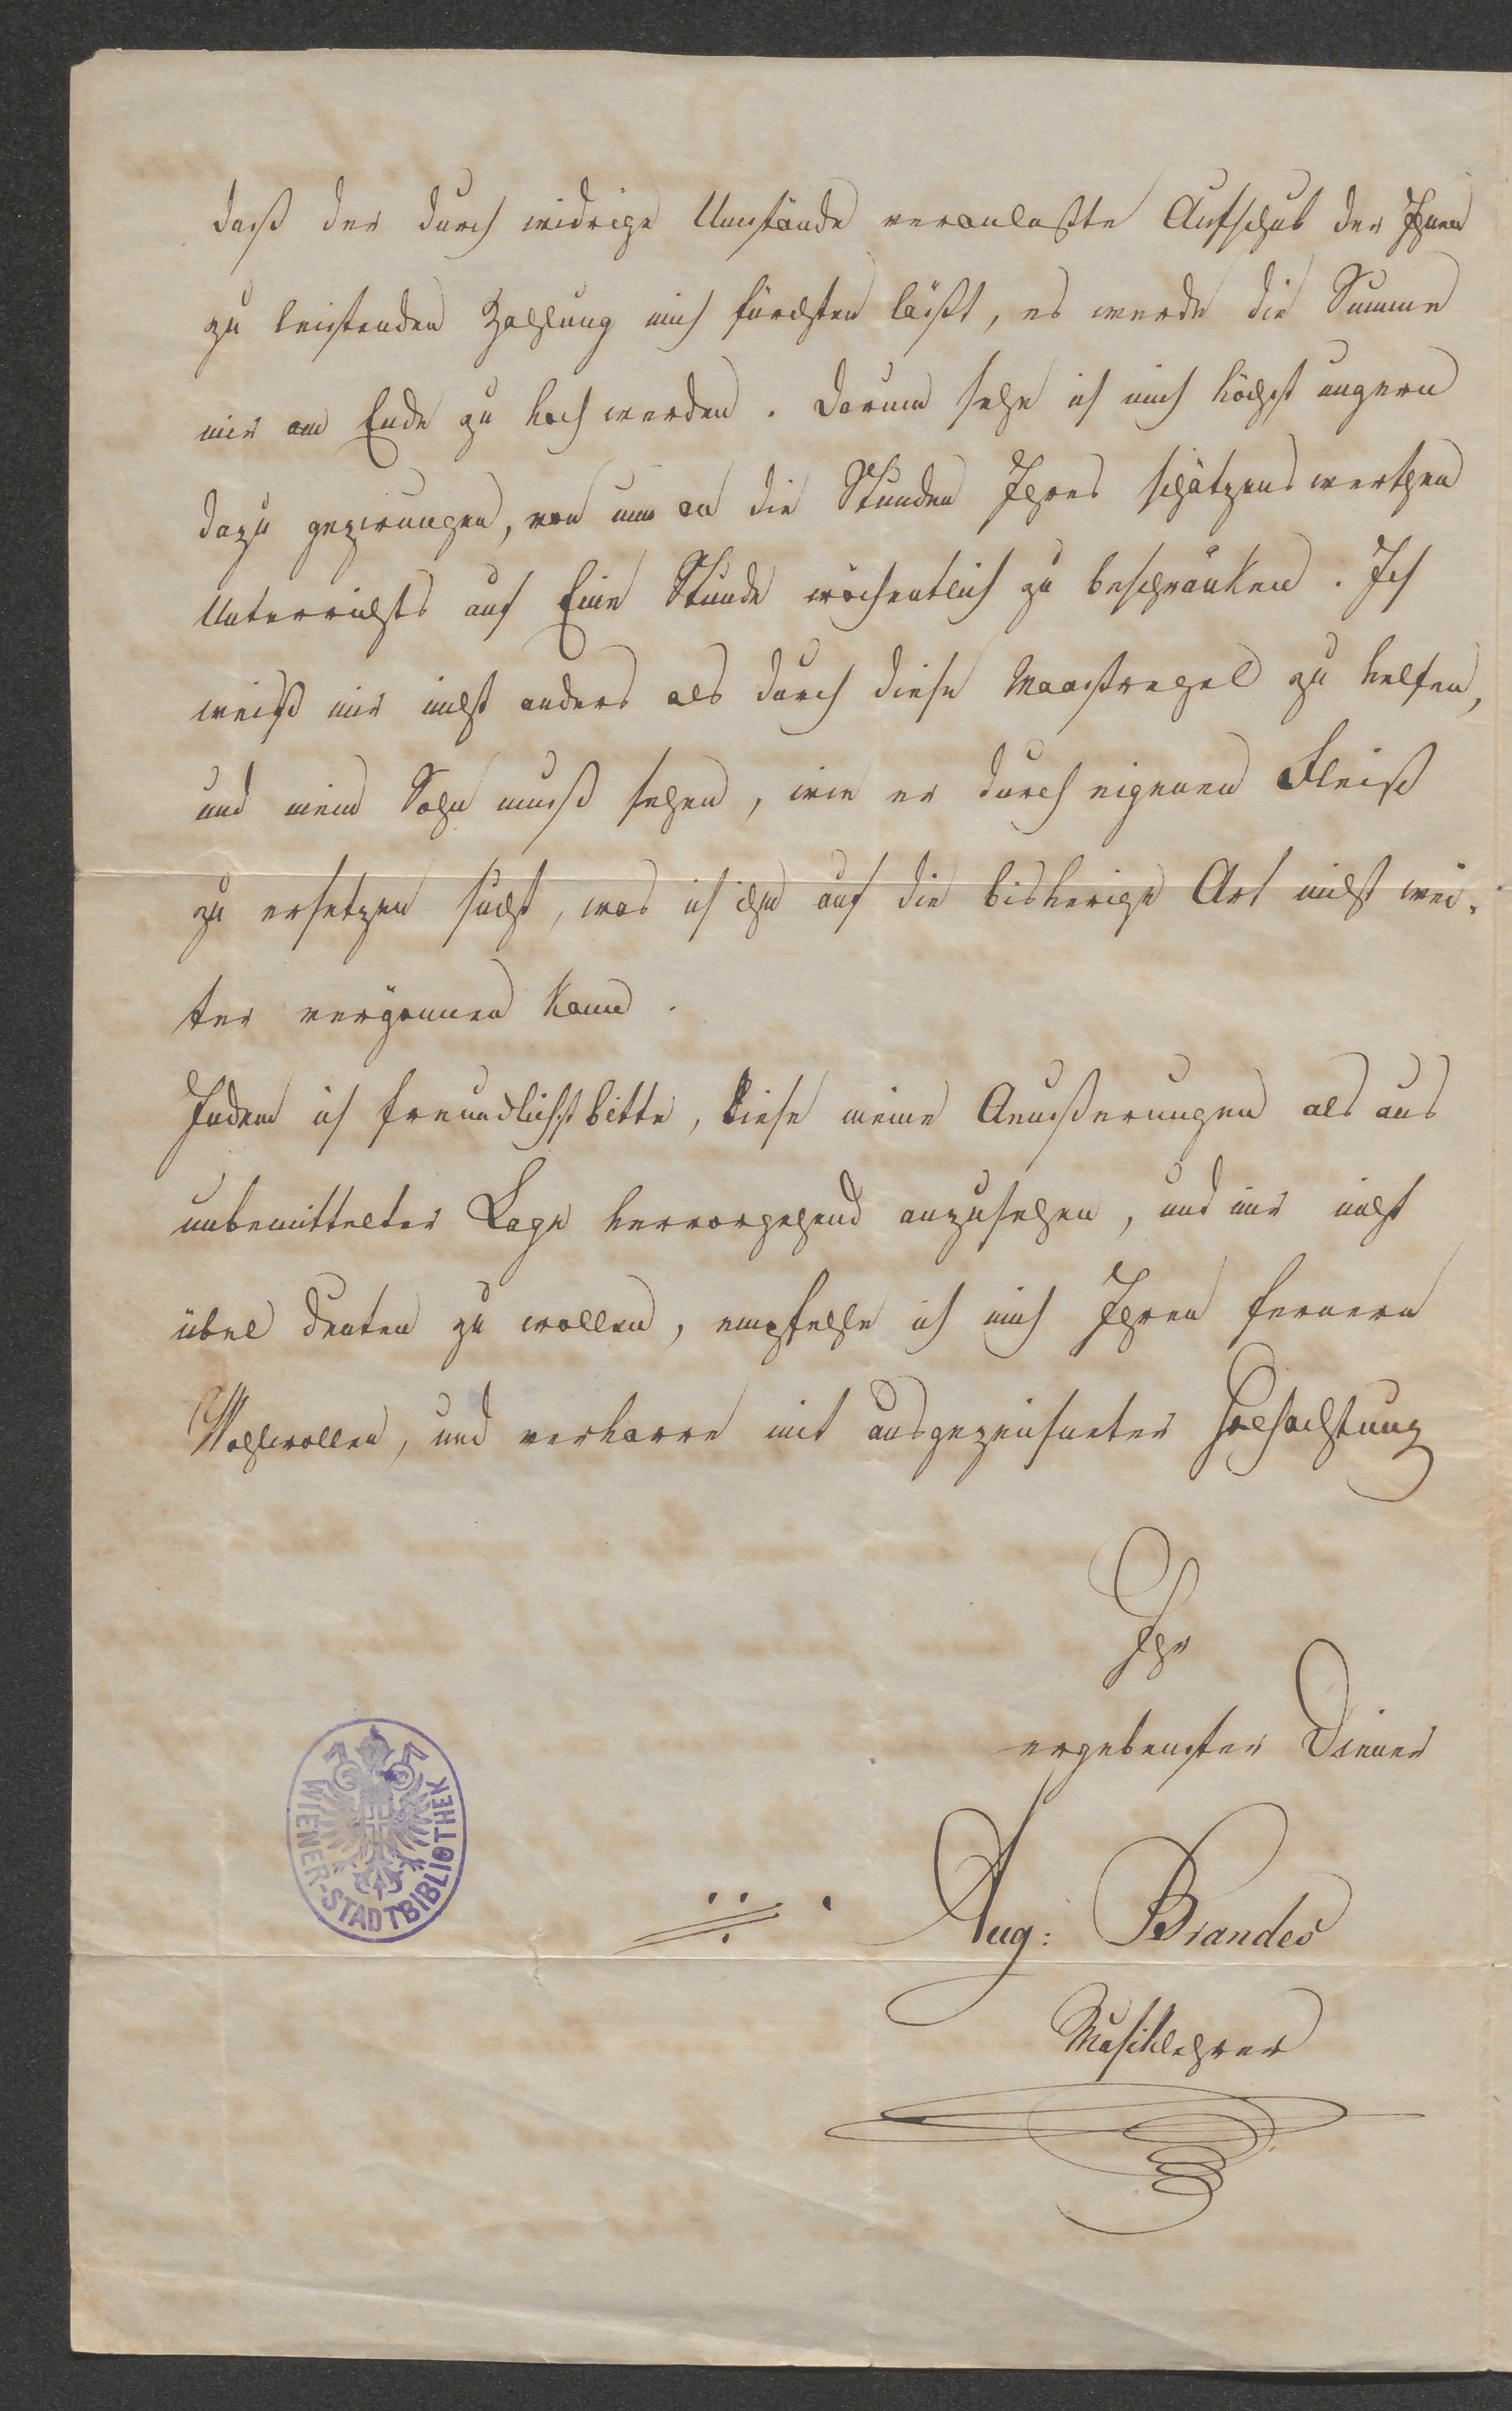 daß der durch widrige Umstände veranlaßte Aufschub der Ihnen
zu leistenden Zahlung mich fürchten läßt, es werde die Summe
mir am Ende zu hoch werden. Darum sehe ich mich höchst ungern
dazu gezwungen, von nun an die Stunden Ihres schätzenswerthen
Unterrichts auf Eine Stunde wöchentlich zu beschränken. Ich
weiß mir nicht anders als durch diese Maaßregel zu helfen,
und mein Sohn muß sehen, wie er durch eigenen Fleiß
zu ersetzen sucht, was ich ihm auf die bisherige Art nicht wei-
ter vergönnen kann.
Indem ich freundlichst bitte, diese meine Aeußerungen als aus
unbemittelter Lage hervorgehend anzusehen, und mir nicht
übel deuten zu wollen, empfehle ich mich Ihren fernern
Wohlwollen, und verharre mit ausgezeichneter Hochachtung
Ihr
ergebenster Diener
Aug: Brandes
Musiklehrer
WIENER-STADTBIBLIOTHEK